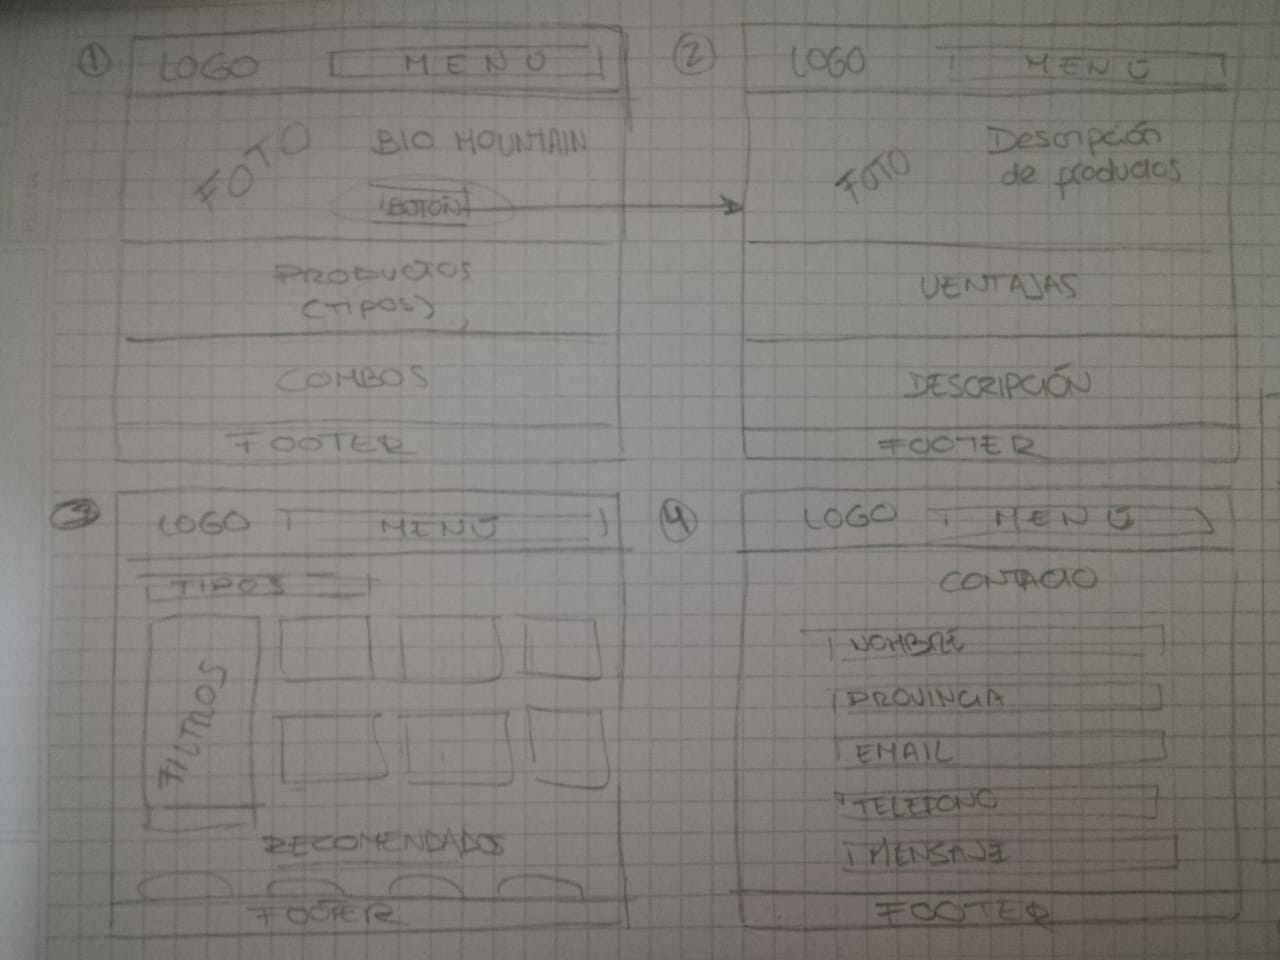 1
LOGO MENÚ
FOTO
BIO MOUNTAIN
BOTÓN
PRODUCTOS
(TIPOS)
COMBOS
FOOTER
2
LOGO MENÚ
FOTO
Descripción
de productos
VENTAJAS
DESCRIPCIÓN
FOOTER
3
LOGO MENÚ
TIPOS
FILTROS
RECOMENDADOS
FOOTER
4
LOGO MENÚ
CONTACTO
NOMBRE
PROVINCIA
EMAIL
TELEFONO
MENSAJE
FOOTER